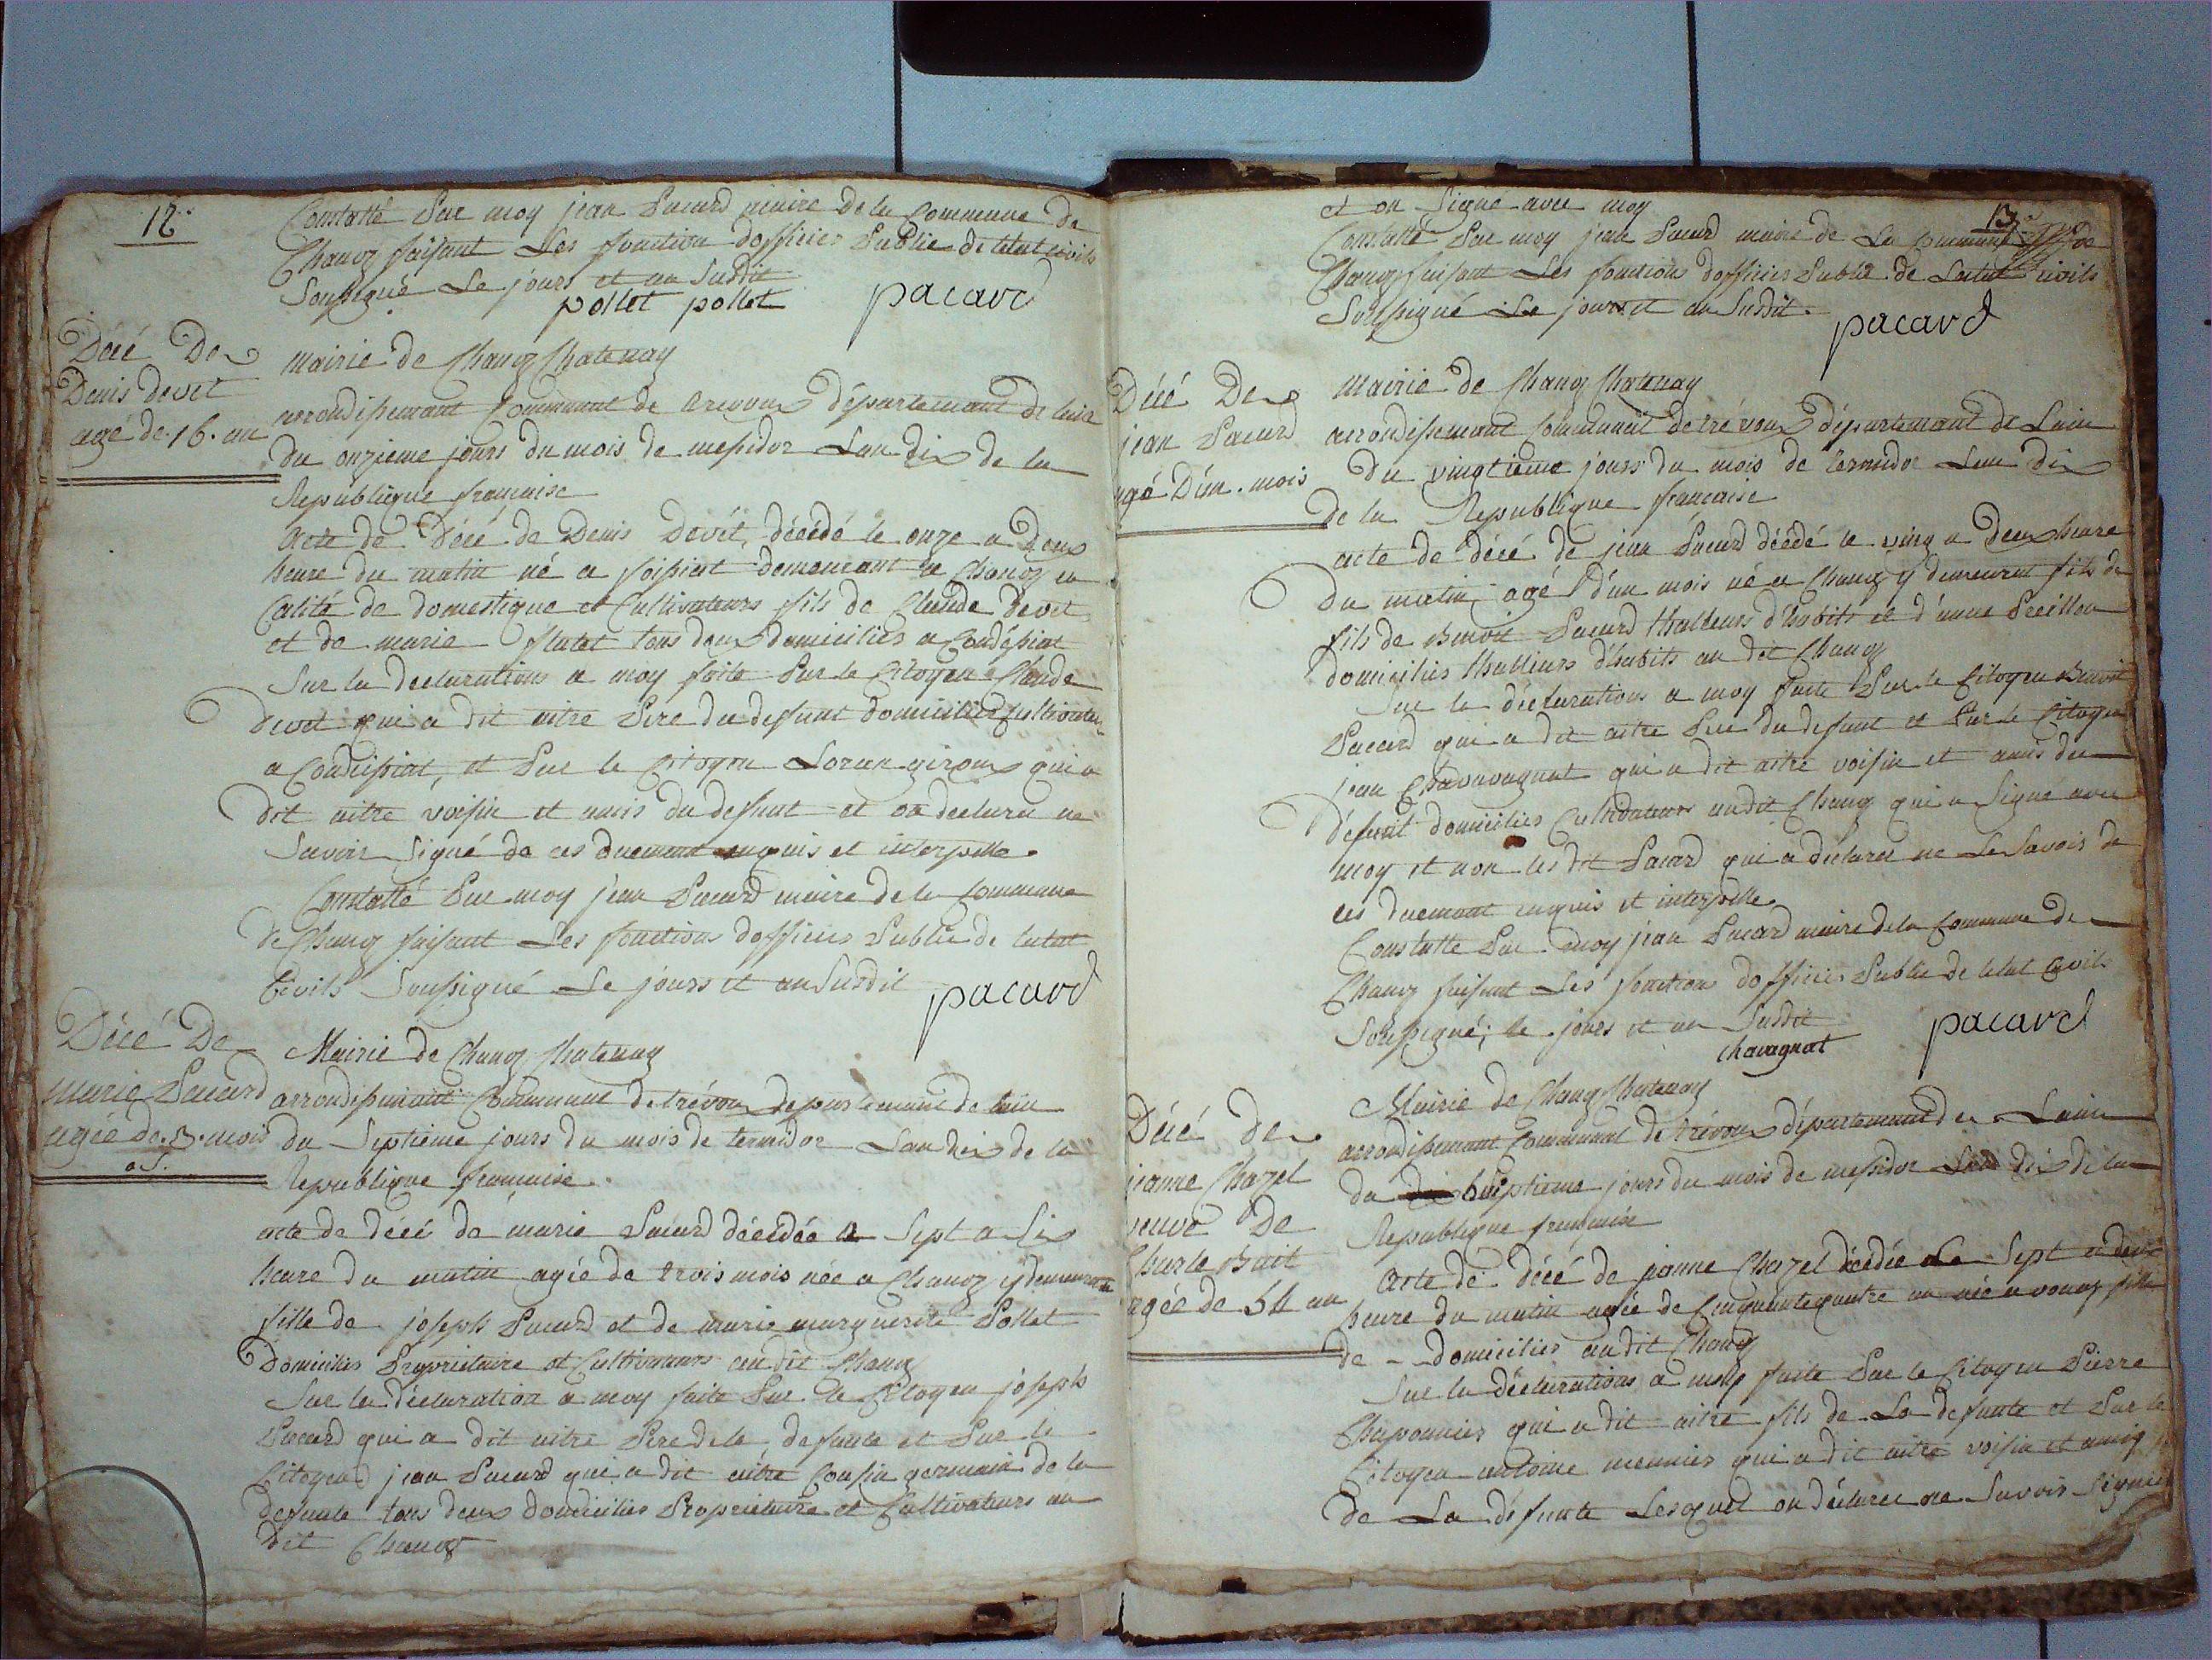 12.
Constatté Par moy jean Pacard maire de la Commune de
Chanoz faisant Les fonction dofficier Public de letat civils
Soussigné Le jours et an Susdit
pollet pollet pacard
Décé De
Denis devet
agé de .16. an
Mairie de Chanoz Chatenay
arrondissemant Communant de trevoux département de lain
du onzieme jours du mois de messidor Lan dix de la
Republique francaise
Acte de Décé de Denis Devét, décédé le onze a Deux
heure du matin né a foissiat demeurant a Chanoz en
Calité de domestique et Cultivateurs fils de Claude devet
et de marie flutet tous deux domiciliés a Condéssiat
Sur la declarations a moy faite Par le Citoyen Claude
devet qui a dit aitre Pere du defunt domicilié Cultivateur
a Condeissiat, et Par le Citoyen Loran giroux qui a
dit aitre voisin et amis du deffunt et on declaru ne
Savoir Signé de ces duemant enquis et interpelle.
Constatté Par moy jean Pacard maire de la Commune
de Chanoz faisant Les fonctions dofficier Public de letat
Civils Soussigné Le jours et an Susdit
pacard
Décé De
Marie Pacard
agée de .3. mois
Mairie de Chanoz Chatenay
arrondissemant Communant de trévoux département de lain
du Septieme jours du mois de termidor Lan dix de la
Republique francaise.
acte de décé de marie Pacard décédée a Sept a Six
heure du matin agée de trois mois née a Chanoz y demeurante
fille de joseph Pacard et de marie marguerite Pollet
Domiciliés Propriétaire et Cultivateurs au dit Chanoz
Sur la déclaration a moy faite Par le Citoyen joseph
Pacard qui a dit aitre Pere de la defunte et Par le
Citoyen jean Pacard qui a dit aitre Cousin germain de la
defunte tous deux domiciliés Propriétaire et Cultivateurs au
dit Chanoz
13.
et on Signé avec moy
Constatté Par moy jean Pacard maire de La Commune de
Chanoz faisant Les fonctions dofficier Public de Letat civils
Soussigné Le jours et an Susdit.
pacard
Décé De
jean Pacard
agé Dún. mois
Mairie de Chanoz Chatenay
arrondissemant Communant de trévoux département de Lain
Du vingtieme jours du mois de termidor Lan dix
de la Republique francaise
acte de décé de jean Pacard décédé a ving a Deux heure
Du matin agé D'un mois né a Chanoz y demeurent fils de
fils de Benoit Pacard thalleurs d'habits et d'anne Preillon
domiciliés thalleurs d'habits au dit Chanoz
Sur la déclarations a moy faite Par le Citoyen Benoit
Pacard qui a dit aitre Pere du defunt et Par le Citoyen
jean Chavanagnat qui a dit aitre voisin et amis du
défunt domiciliés Cultivateurs audit Chanoz qui a Signé avec
moy et non les dit Pacard qui a déclaree ne Le Savoir de
ces duemant enquis et interpelle
Constatte Par moy jean Pacard maire de la Commune De
Chanoz faisant Les fonction dofficier Public de létat Civils
Soussigné, le jours et an Susdit
chavagnat pacard
Décé de
jeanne Chazel
veuve De
Charle Buit
agée de 54 an
Mairie de Chanoz Chatenay
arrondissemant Communal de trévoux département de Lain
du huiptieme jours du mois de messidor Lan dix de la
Republique francaise
Acte de décé de jeanne Chazel décédée Le Sept a deux
heure du matin agée de Cinquantequatre an née a vonas fille
de - Domiciliés au dit Chanoz
Sur la déclarations a moy faite Par le Citoyen Pierre
Chaponnier qui a dit aitre fils de La defunte et Par le
Citoyen antoine meunier qui a dit aitre voisin et amis
de La défunte Lesquel on déclaree ne Savoir Signer